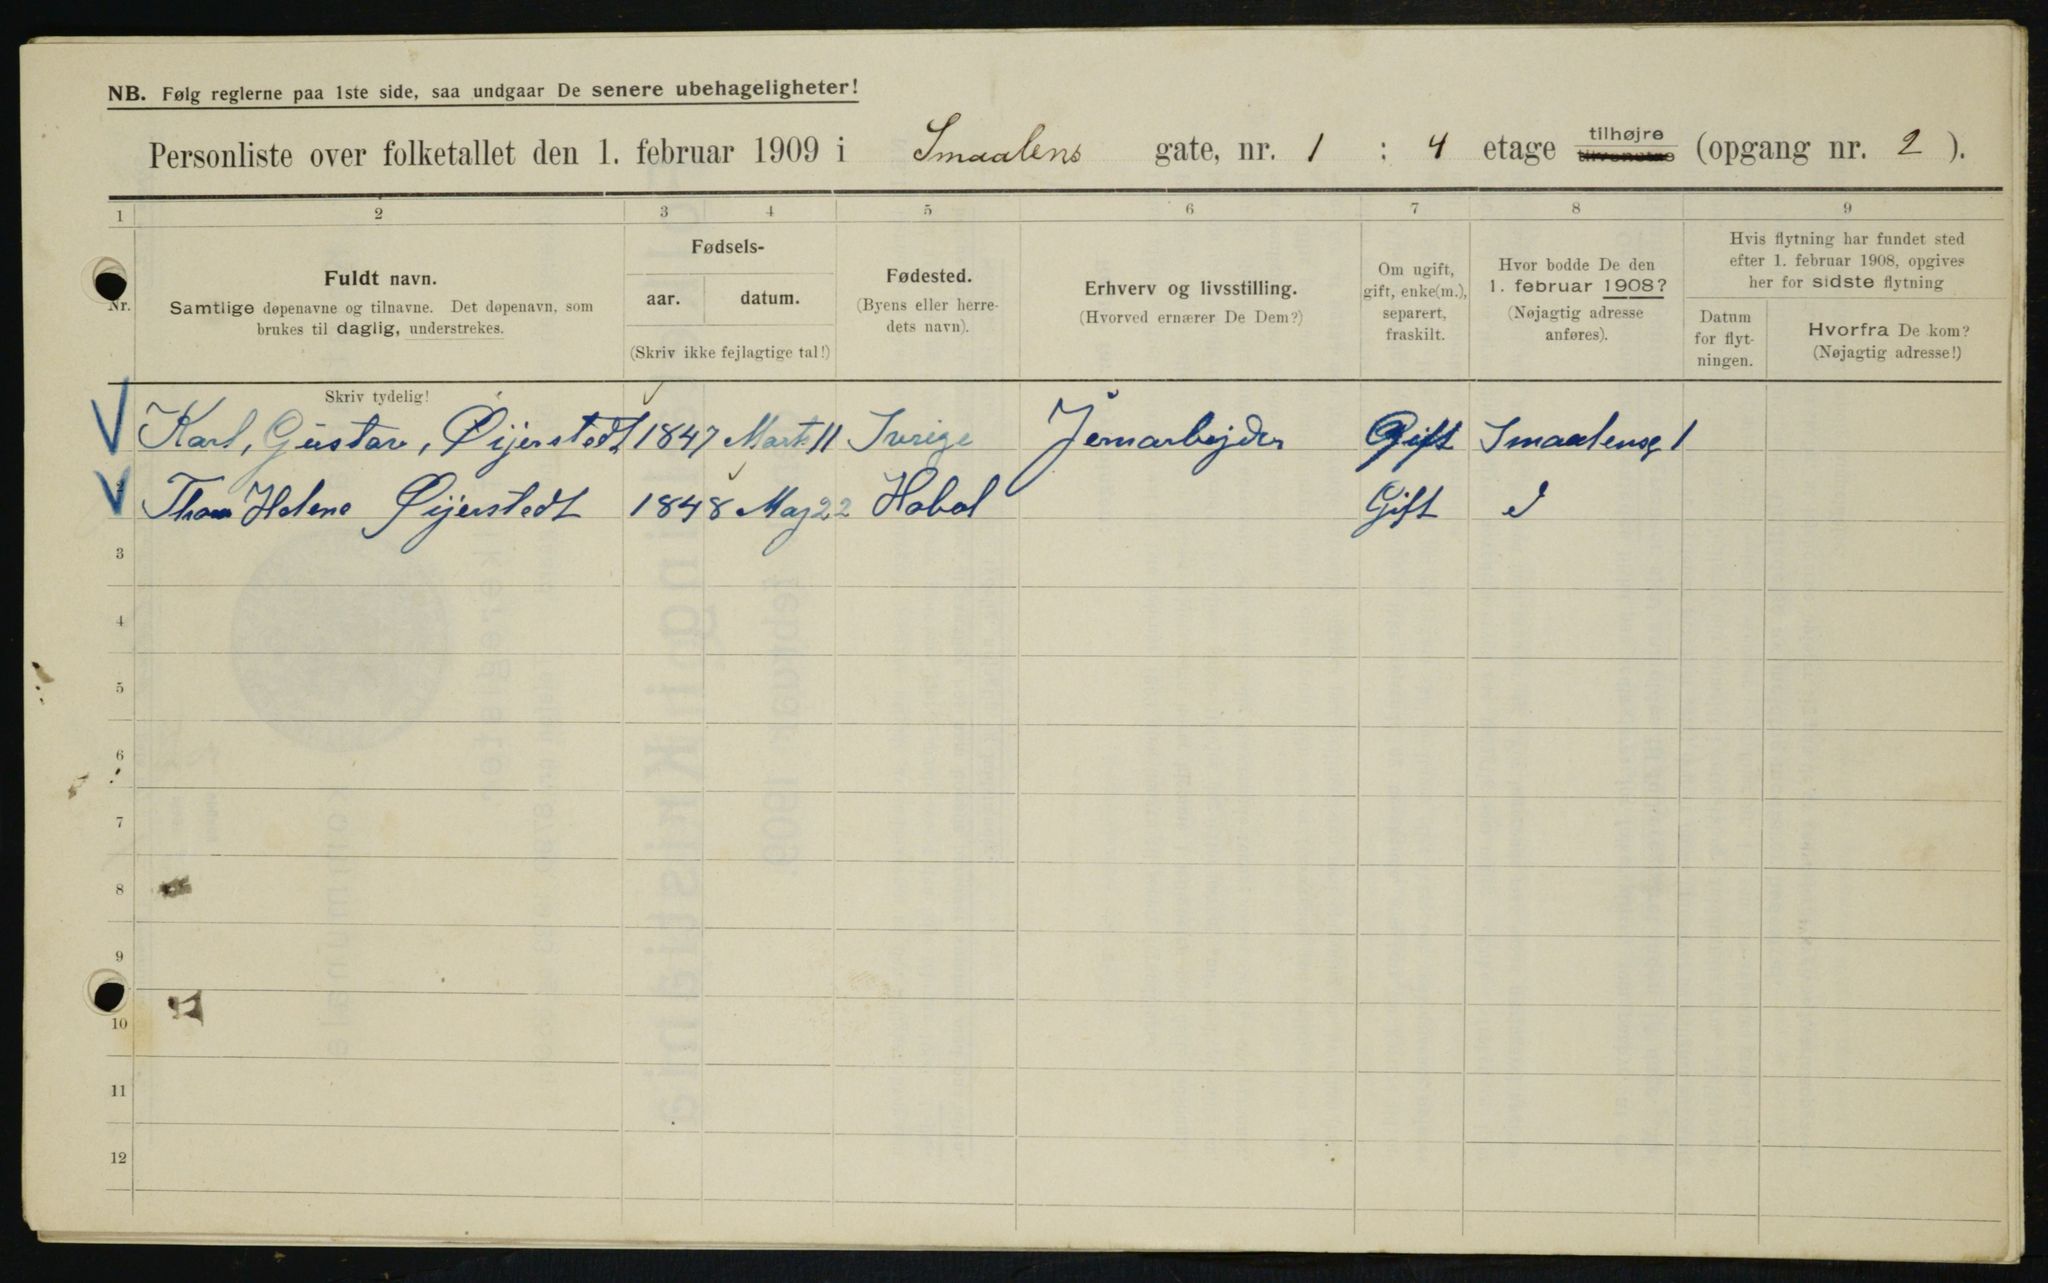 NB. Følg reglerne paa 1ste side, saa undgaar De senere ubehageligheter!
Personliste over folketallet den 1. februar 1909 i Smaalens gate, nr. 1 : 4 etage tilhøjre tilvenstre (opgang nr. 2 ).
1 2 3 4 5 6 7 8 9
Nr.
Fuldt navn.
Samtlige døpenavne og tilnavne. Det døpenavn, som
brukes til daglig, understrekes.
Fødsels-
aar. datum.
(Skriv ikke fejlagtige tal!)
Fødested.
(Byens eller herre-
dets navn).
Erhverv og livsstilling.
(Hvorved ernærer De Dem?)
Om ugift,
gift, enke(m.),
separert,
fraskilt.
Hvor bodde De den
1. februar 1908?
(Nøjagtig adresse
anføres).
Hvis flytning har fundet sted
efter 1. februar 1908, opgives
her for sidste flytning
Datum
for flyt-
ningen.
Hvorfra De kom?
(Nøjagtig adresse!)
Skriv tydelig!
Karl, Gustav, Øijerstedt 1847 Marts 11 Sverige Jernarbejder Gift Smaalensg 1
2 Helene Øijerstedt 1848 Maj 22 Hobøl Gift
3
4
5
6
7
8
9
10
11
12